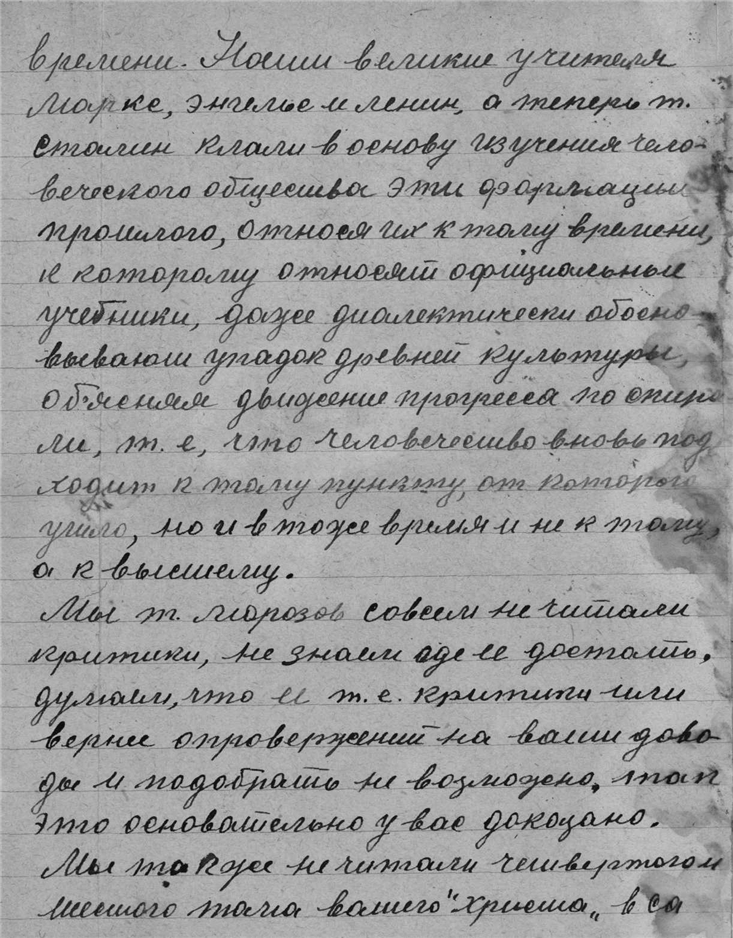 времени. Наши великие учителя
Маркс, Энгельс и Ленин, а теперь т.
Сталин клали в основу изучения чело-
веческого общества эти формации
прошлого, относя их к тому времени,
к которому относят официальные
учебники, даже диалектически обосно
вывают упадок древней культуры,
об'ясняя движение прогресса по спира
ли, т. е, что человечество вновь под
ходит к тому пункту, от которого
ушло, но и в тоже время и не к тому,
а к высшему.
Мы т. Морозов совсем не читали
критики, не знаем где ее достать.
думаем, что ее т. е. критики или
вернее опровержений на ваши дово
ды и подобрать не возможно, так
это основательно у вас доказано.
Мы также не читали четвертого и
шестого тома вашего "Христа„ в са